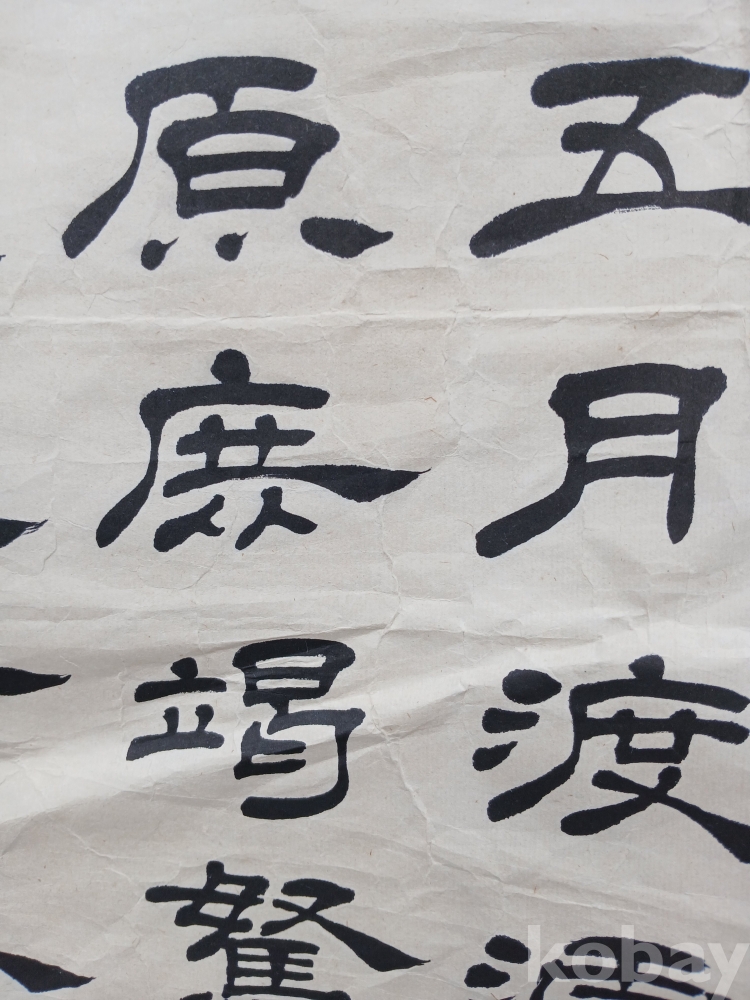 五月渡
原庶竭駑
kobay